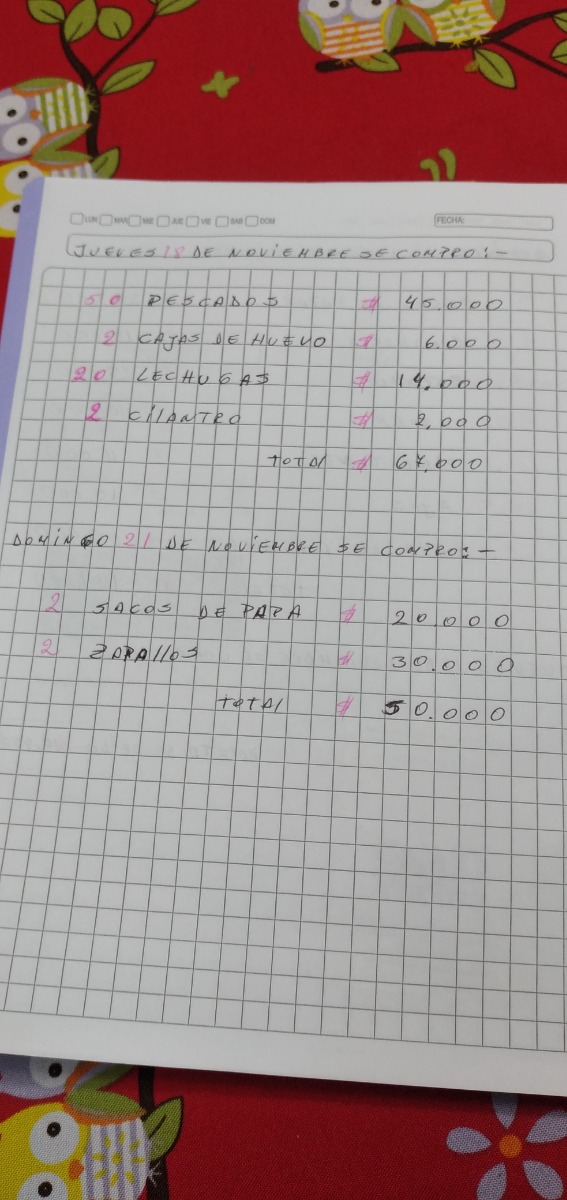 LUN MAR MIE JUE VIE SAB DOM FECHA:
JUEVES 18 DE NOVIEMBRE SE COMPRO:-
50 PESCADOS $ 45.000
2 CAJAS DE HUEVO $ 6.000
20 LECHUGAS $ 14.000
2 CILANTRO $ 2,000
TOTAL $ 67,000
DOMINGO 21 DE NOVIEMBRE SE COMPRO:-
2 SACOS DE PAPA $ 20.000
2 ZAPALLOS $ 30.000
TOTAL $ 50.000